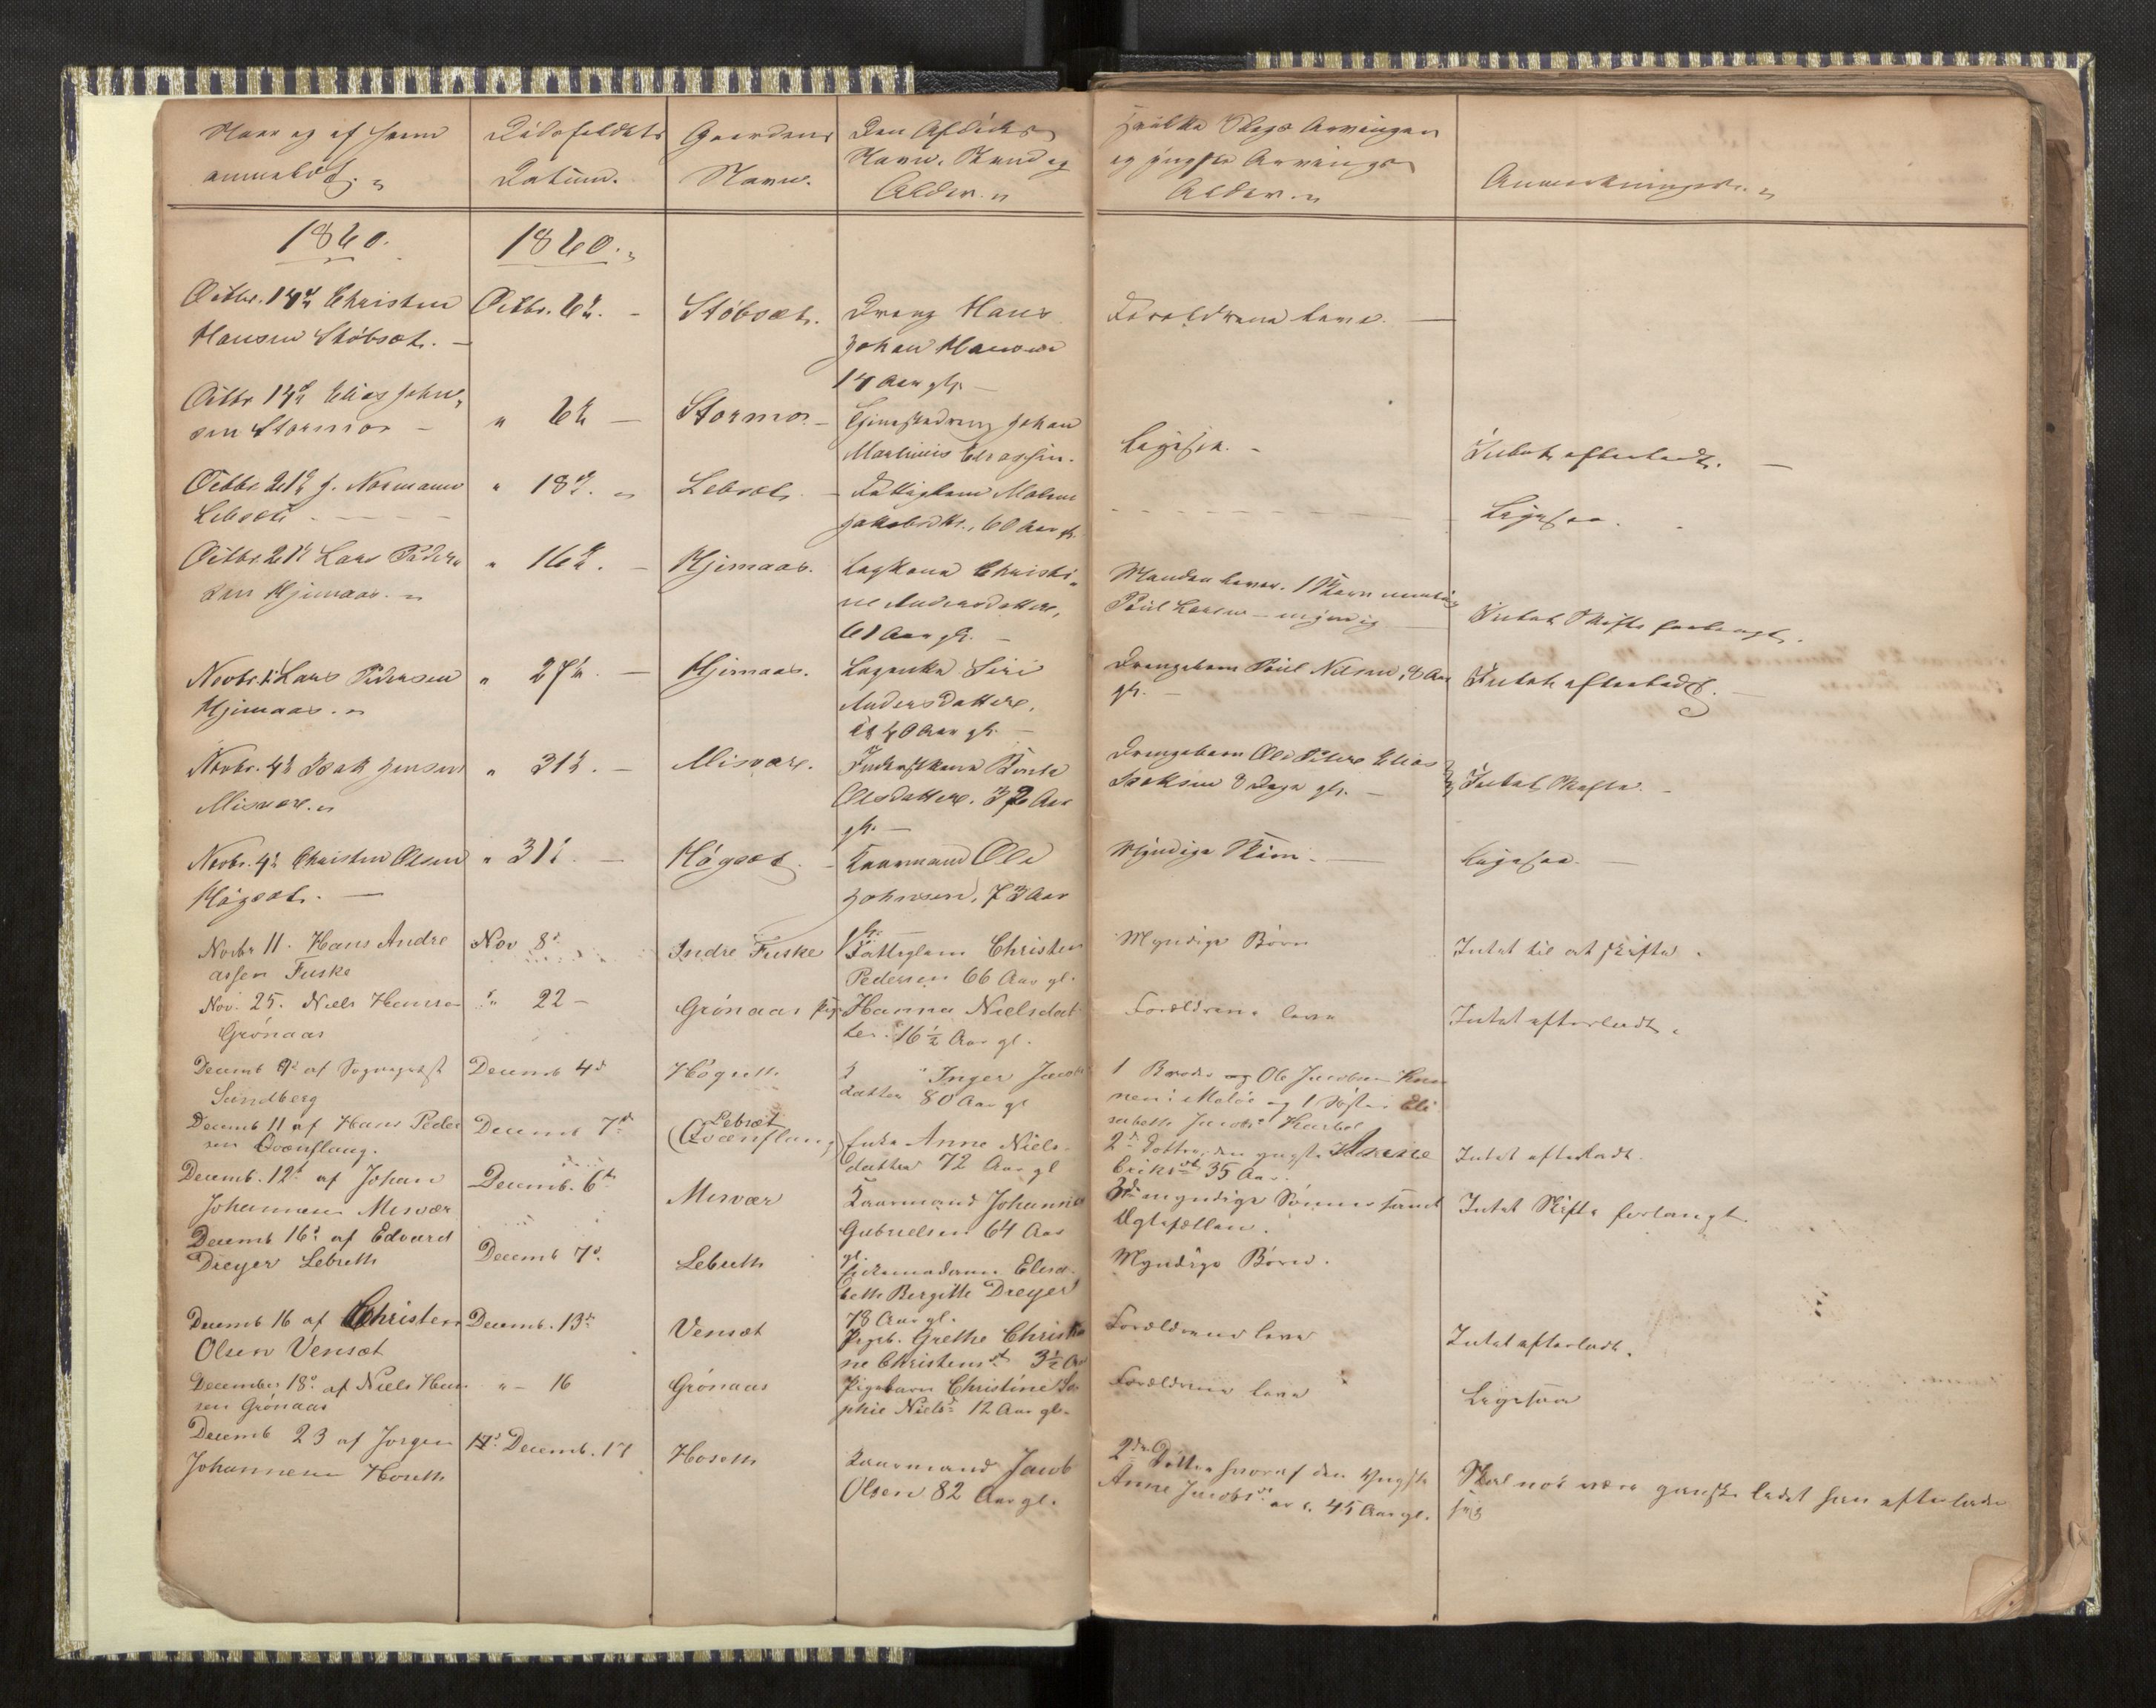 Naar og af hvem
anmeldt.
Dødsfaldets
Datum.
Gaardens
Navn.
Den Afdødes
Navn, Stand og
Alder.
Hvilke Slags Arvinger
og yngste Arvings
Alder.
Anmærkninger.
1860.
1860.
Octbr. 14de Christen
Hansen Støbsæt.
Octbr. 6te
Støbsæt.
Dreng Hans
Johan Hansen
14 Aar gl.
Forældrene leve.
Octbr. 14de Elias John-
sen Stormo
" 6te
Stormo
Johan
Martinus Eliassen.
Ligesaa.
Intet efterladt.
Octbr. 21de J. Normann
Lebsæt
" 18de
Lebsæt
Fattiglem Malene
Jakobsdtr., 60 Aar gl.
Ligesaa.
Octbr. 21de Lars Peder-
sen Hjemaas.
" 16de
Hjemaas.
Christi-
ne Andersdatter,
61 Aar gl.
Manden lever. 1
Poul Larsen – myndig
Intet Skifte forlangt.
Novbr. Lars Pedersen
Hjemaas.
" 27de
Hjemaas.
Siri
Andersdatter,
40 Aar gl.
Drengebarn Poul Nilsen, 8 Aar
gl.
Intet efterladt.
Novbr. 4de Isak Jensen
Misvær.
" 31te
Misvær.
Olsdatter. 32 Aar
gl.
Drengebarn Ole Peter Elias
Isaksen 8 Dage gl.
Intet Skifte.
Novbr. 4de Christen Olsen
Høgsæt.
" 31te
Høgsæt.
Kaarmand Ole
Johnsen, 73 Aar
gl.
Myndige Børn.
Ligesaa.
Novbr 11. Hans Andre
assen Fuske
Nov 8de
Indre Fuske
Fattiglem Christen
Pedersen 66 Aar gl.
Myndige Børn
Intet til at skifte.
Nov. 25. Niels Hansen
Grønaas
" 22
Grønaas
Pige Hanna Nielsdat
ter. 16 ½ Aar gl.
Forældrene leve
Intet efterladt.
Decemb 9de af Sogneprest
Sundberg
Decemb 4de
Høgseth
Inger Jacobs
datter 80 Aar gl
1 Broder og Ole Jacobsen
nen i og 1 Søster Eli
sabeth Jacobsd
Decemb 11 af Hans Peder
sen Qvænflaug.
Decemb 7de
Lebsæt
(Qvænflaug)
Enke Anne Niels-
datter 72 Aar gl
2de Døttre, den yngste
Eriksdt 35 Aar.
Intet efterladt.
Decemb. 12te af Johan
Johannesen Misvær
Decemb. 6te
Misvær
Kaarmand Johannes
Gabrielsen 64 Aar
gl.
3de myndige Sønner samt
Ægtefællen.
Intet Skifte forlangt
Decemb 16de af Edvard
Dreyer Lebseth
Decemb 7de
Lebseth
Elisa-
beth Bergitte Dreyer
78 Aar gl.
Myndige Børn.
Decemb 16 af Christen
Olsen Vensæt
Decemb. 13de
Vensæt
Pigeb. Grethe Christi
ne Christensdt 3½ Aar
Forældrene leve
Intet efterladt.
December 18de af Niels Han
sen Grønaas
" – 16
Grønaas
Pigebarn Christine So
phie Nielsd 12 Aar gl.
Forældrene leve
Ligesaa
Decemb 23 af Jorgen
Johannesen Hoseth
Decemb. 17
Hoseth
Kaarmand Jacob
Olsen 82 Aar gl.
2de Døttre hvoraf den yngste
Anne Jacobsdt er c. 45 Aar gl.
Skal nok være ganske lidet han efterlader
sig